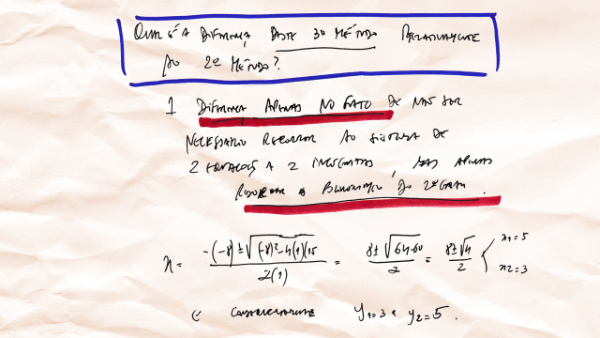 QUAL É A DIFERENÇA DESTE 3º MÉTODO RELATIVAMENTE
AO 2º MÉTODO?
1 DIFERENÇA APENAS NO FATO DE NÃO SER
NECESSÁRIO RECORRER AO SISTEMA DE
2 EQUAÇÕES A 2 INCÓGNITAS, MAS APENAS
RESOLVER A DO 2º GRAU.
x = (-(-8) ± √((-8)² - 4(1)(15)) / 2(1) = (8 ± √(64-60)) / 2 = (8 ± √4) / 2 { x1 = 5
x2 = 3
E CONSEQUENTEMENTE y1 = 3 e y2 = 5.